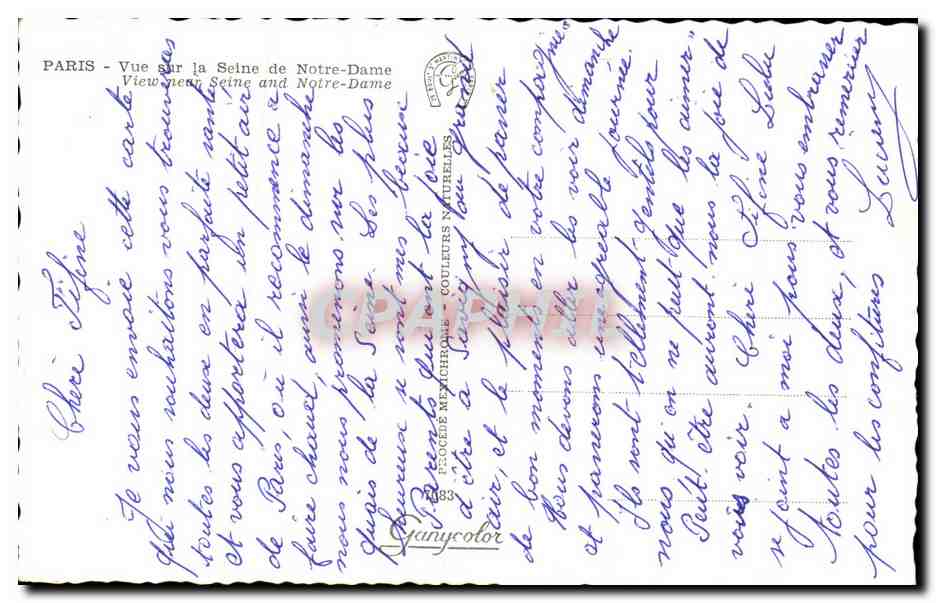 PARIS - Vue sur la Seine de Notre-Dame
View near Seine and Notre-Dame
Chère Fifine
Je vous envoie cette carte
que nous souhaitons vous trouveras
toutes les deux en parfaite santé
et vous apportera un petit air
de Paris, où il recommence a
faire chaud, aussi le dimanche
nous nous promenons sur les
quais de la Seine. Les plus
heureux sont mes beaux
Parents qui ont la joie
d'être a Savigny au grand
air, et le plaisir de passer
de bon moments en votre compagnie
Nous devons aller les voir dimanche
et passerons une agréable journée
ils sont tellement gentils pour
nous qu'on ne peut que les aimer
Peut-être aurons nous la joie de
vous voir. Chère Fifine Lulu
se joint a moi pour vous embrasser
toutes les deux, et vous remercier
pour les confitures
Lucien
PROCÉDÉ MEXICHROME COULEURS NATURELLES
7483
Ganycolor
CPAPHIL